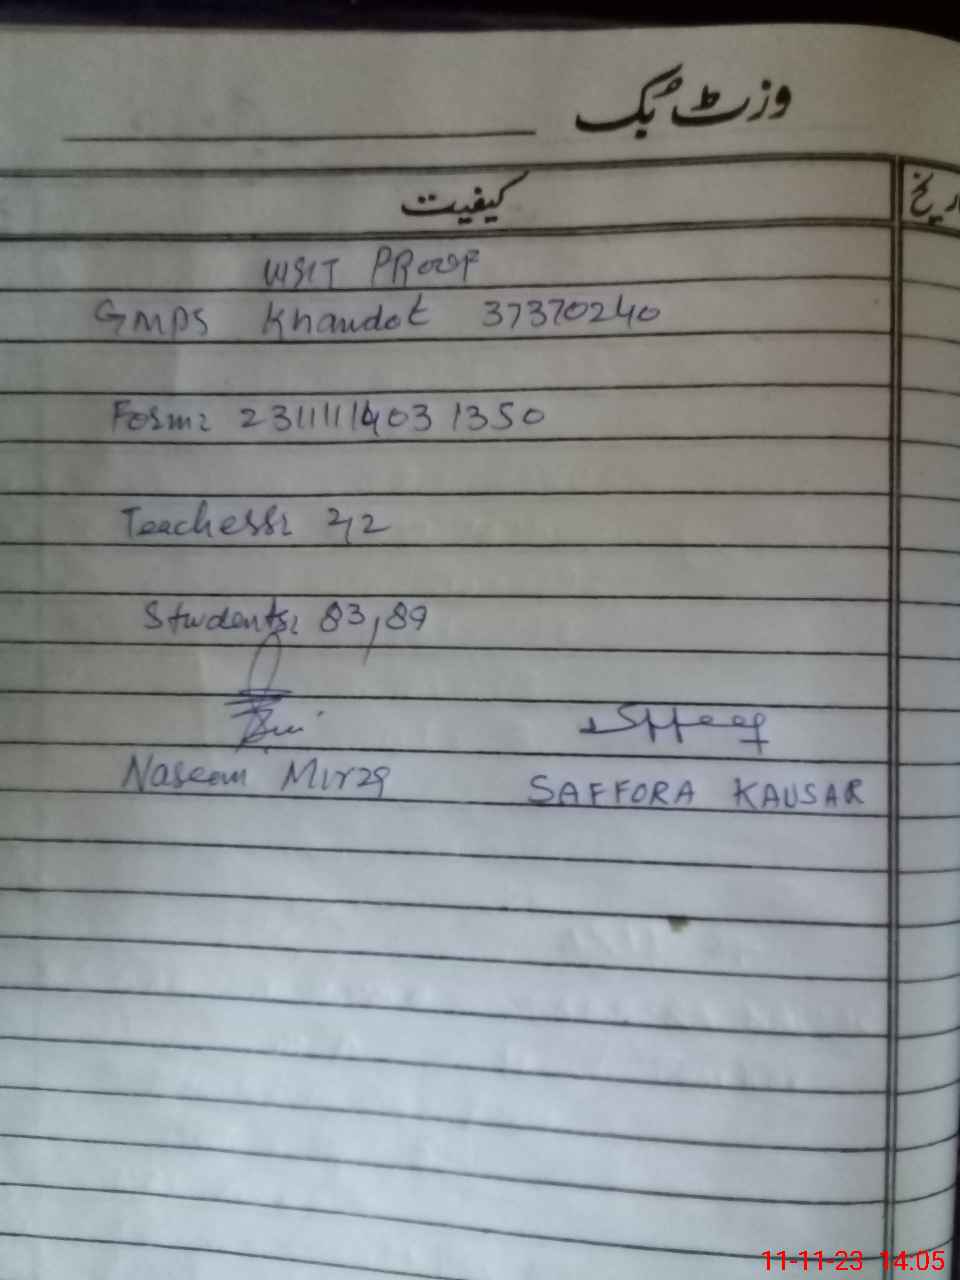 وزٹ بُک
کیفیت
تاریخ
VISIT PROOF
GMPS Khandot 37370240
Form: 23111114031350
Teachers: 2,2
Students: 83,89
Naseem Mirza
SAFFORA KAUSAR
11-11-23 14:05